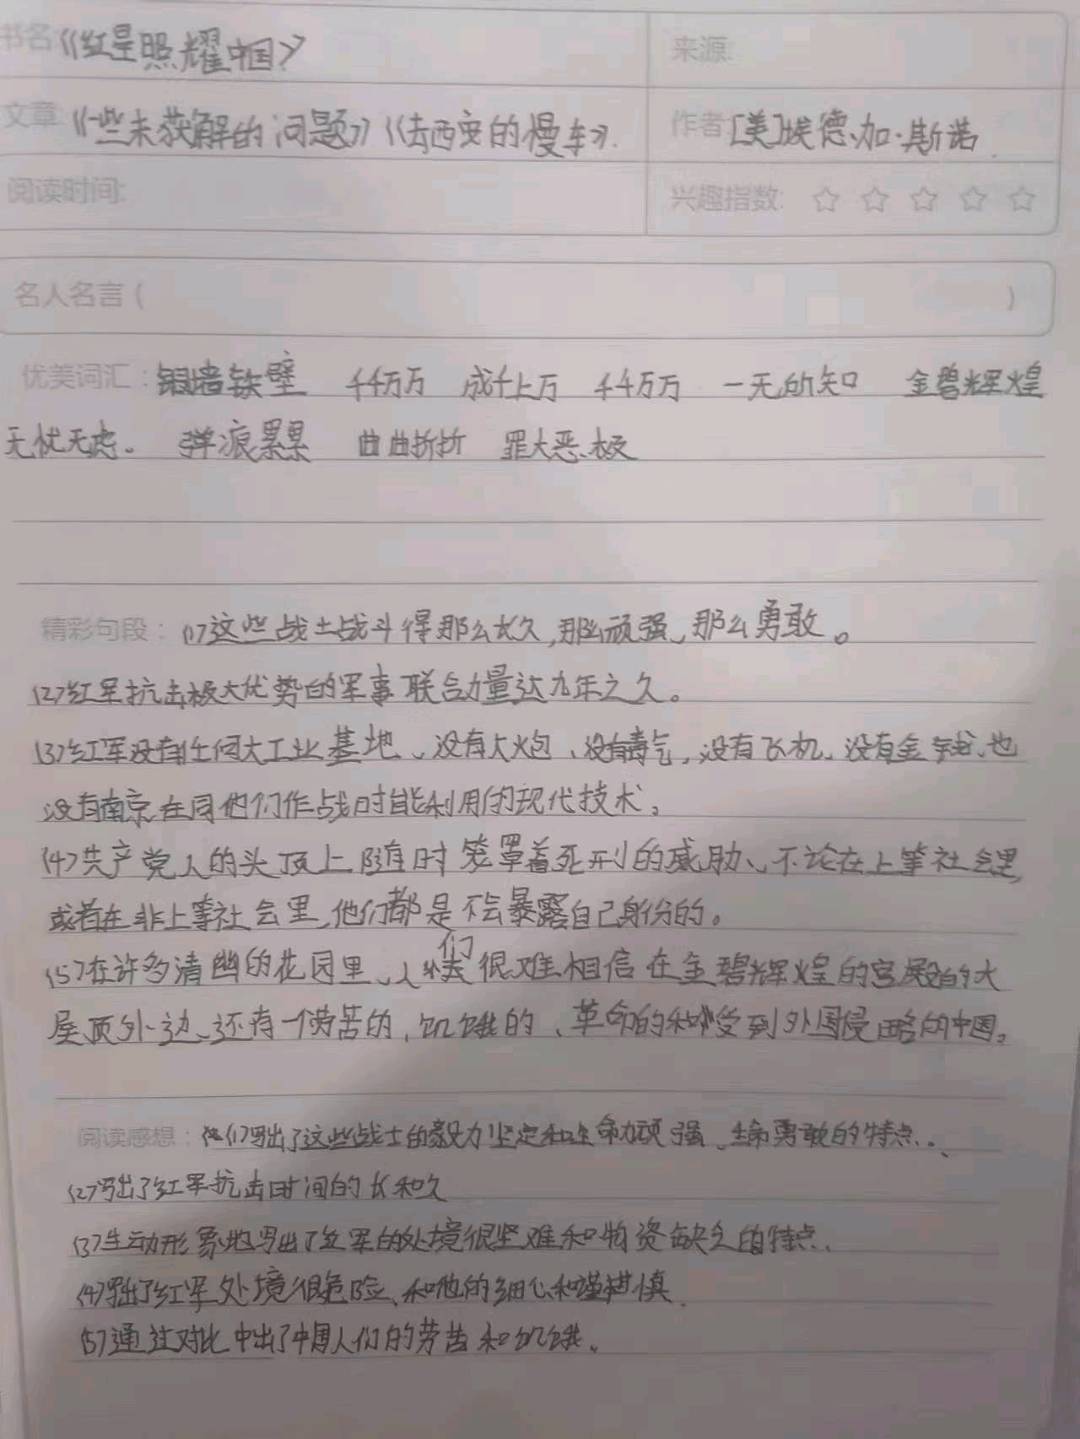 书名《红星照耀中国》 来源:
文章《一些未获解的问题》《去西安的慢车》. 作者[美]埃德·加·斯诺.
阅读时间: 兴趣指数: ☆ ☆ ☆ ☆ ☆
名人名言 ( )
优美词汇：铜墙铁壁 千千万万 成千上万 千千万万 一无所知 金碧辉煌
无忧无虑。 弹痕累累 曲曲折折 罪大恶极
精彩句段：(1)这些战士战斗得那么长久,那么顽强、那么勇敢。
(2)红军抗击极大优势的军事联合力量达九年之久。
(3)红军没有任何大工业基地、没有大炮、没有毒气,没有飞机、没有金钱、也
没有南京在同他们作战时能利用的现代技术。
(4)共产党人的头顶上随时笼罩着死刑的威胁、不论在上等社会里,
或者在非上等社会里,他们都是不会暴露自己身份的。
(5)在许多清幽的花园里、人们很难相信在金碧辉煌的宫殿的大
屋顶外边、还有一个劳苦的,饥饿的、革命的和受到外国侵略的中国。
阅读感想：(1)写出了这些战士的毅力坚定和生命顽强、生命勇敢的特点.
(2)写出了红军抗击时间的长和久
(3)生动形象地写出了红军的处境很坚难和物资缺乏的特点.
(4)写出了红军处境很危险、和他的细心和谨慎
(5)通过对比中出了中国人们的劳苦和饥饿。